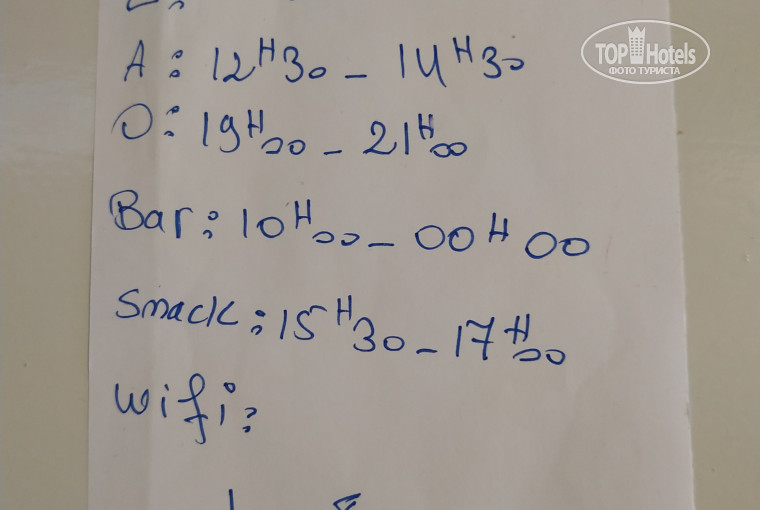 A: 12H30 - 14H30
O: 19H00 - 21H00
Bar: 10H00 - 00H00
Snack: 15H30 - 17H00
Wifi:
TOP Hotels
ФОТО ТУРИСТА